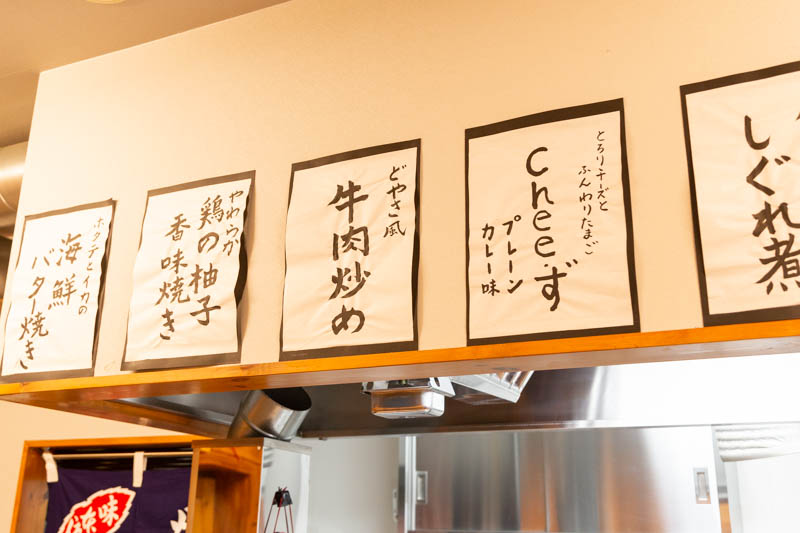 とろりチーズと
ふんわりたまご
Chee・ず
プレーン
カレー味
どやさ風
牛肉炒め
やわらか
鶏の柚子
香味焼き
ホタテとイカの
海鮮
バタ焼き
しぐれ煮
味